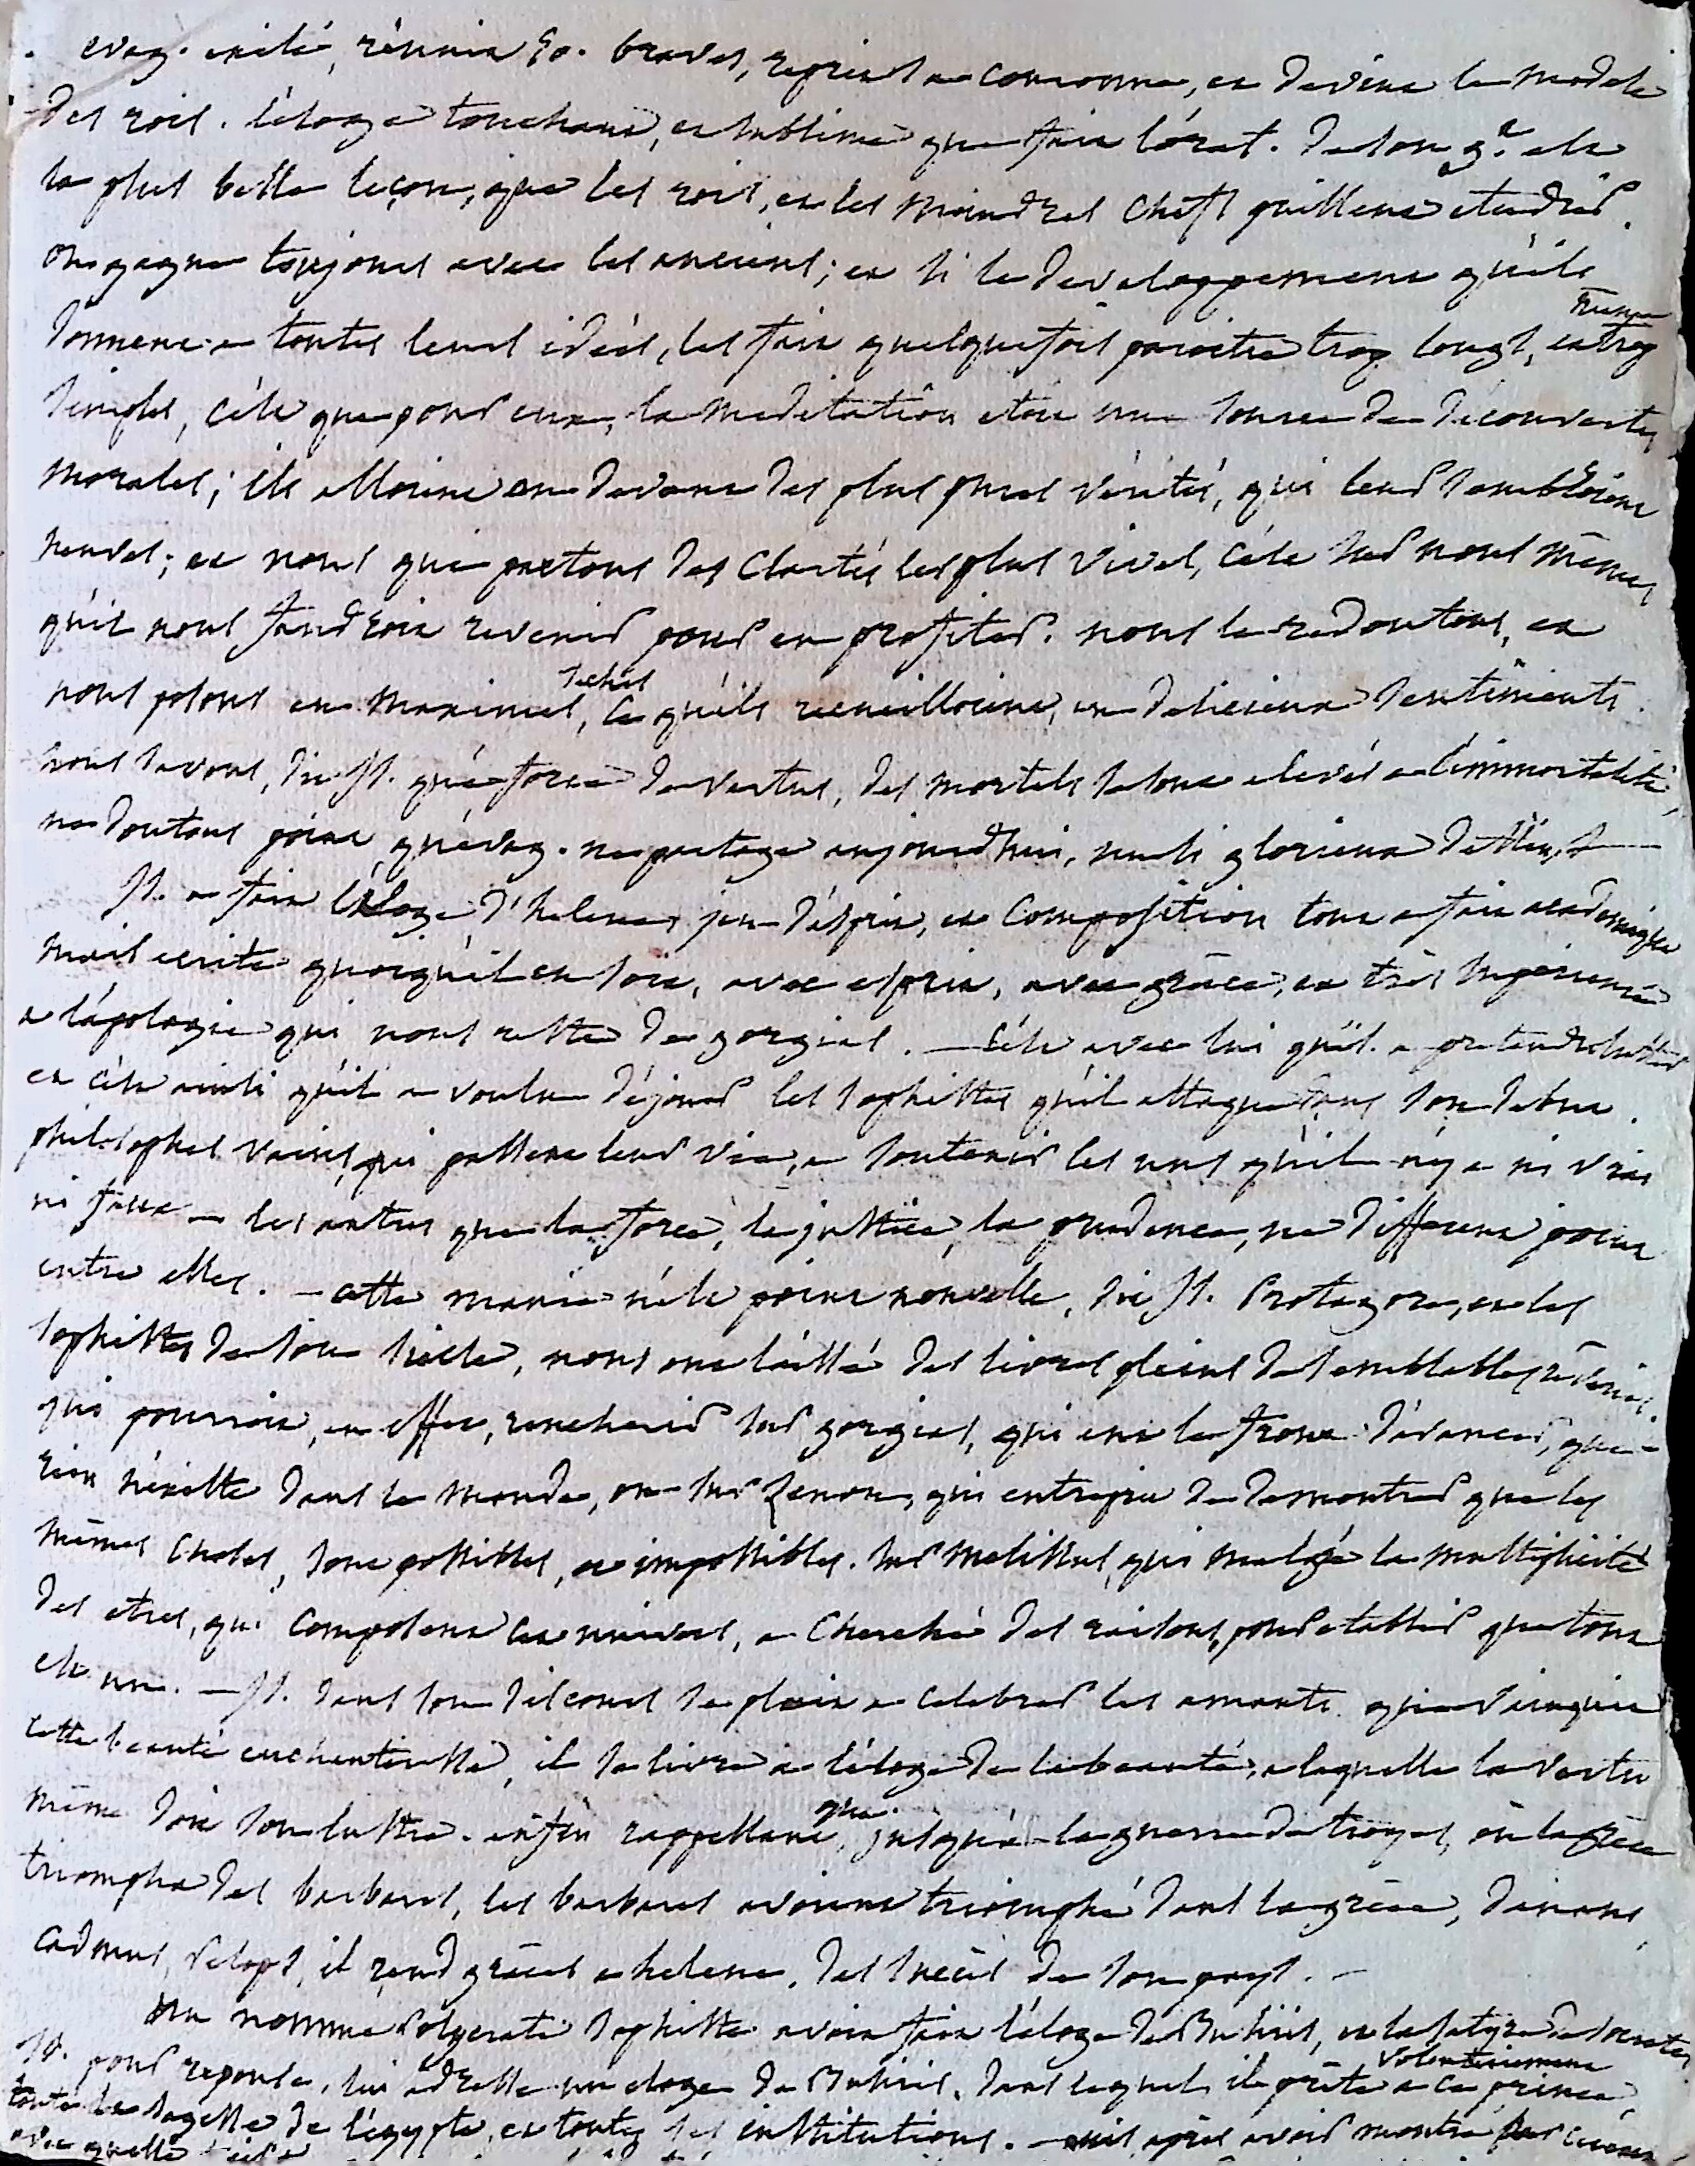 evag. exilé, réunit 50. braves, reprend sa couronne, et devint le modele
des rois. l'éloge touchant, et sublime que fait l'orat. de son g.d est
la plus belle leçon, que les rois, et les moindres chefs puissent etudier.
on gagne toujours avec les anciens; et si le developpement qu'ils
donnent a toutes leurs idées, les fait quelquefois paroitre trop longs, et trop
simples, c'est que pour eux, la meditation etoit une source de découvertes
morales; ils alloient au devant des plus pures vérités, qui leur sembloient
neuves; et nous qui partons des clartés les plus vives, c'est sur nous mêmes
qu'il nous faudroit revenir pour en profiter. nous le redoutons, et
nous posons en maximes, seches ce qu'ils recueilloient, en delicieux sentiments.
nous savons, dit Is. qu'a force de vertus, des mortels se sont elevés a l'immortalité,
ne doutons point, qu'evag. ne partage aujourdhui, un si glorieux destin.
Is. a fait l'éloge d'helene, jeu d'esprit, et composition tout a fait academique
mais ecrite quoiqu'il en soit, avec esprit, avec grâce, et très superieure
a l'apologie qui nous reste de gorgias. — c'est avec lui qu'il a pretendu lutter
et c'est ainsi qu'il a voulu déjouer les sophistes qu'il attaque dans son debut.
philosophes vains, qui passent leur vie, a soutenir les uns qu'il n'y a ni vrai
ni faux — les autres que la force, la justice, la prudence, ne different point
entre elles. — cette manie n'est point nouvelle, dit Is. Protagore, et les
sophistes de son siecle, nous ont laissé des livres pleins de semblables rêveries.
qui pourroit, en effet, rencherir sur gorgias, qui eut le front d'avancer, que
rien n'existe dans le monde, ou sur Zenon, qui entreprit de demontrer que les
mêmes choses, sont possibles, et impossibles. sur Melissus, qui malgré la multiplicité
des etres, qui composent cet univers, a cherché des raisons, pour etablir que tout
est un. — Is. dans son discours se plait a celebrer les amants que vainquit
cette beauté enchanteresse, il se livre a l'éloge de la beauté, a laquelle la vertu
même doit son lustre. enfin rappellant, que jusqu'a la guerre de troyes, où la grèce
triompha des barbares, les barbares avoient triomphé dans la grèce, Danaus,
Cadmus, Pelops, il rend grâces a helene, des succès de son pays. —
un nommé Polycrate sophiste avoit fait l'éloge de Busiris, et la satyre de Socrate,
Is. pour reponse, lui adresse un eloge de Busiris, dans lequel il prête volontairement a ce prince,
toute la sagesse de l'égypte, et toutes ses institutions. — mais après avoir montré
avec quelle